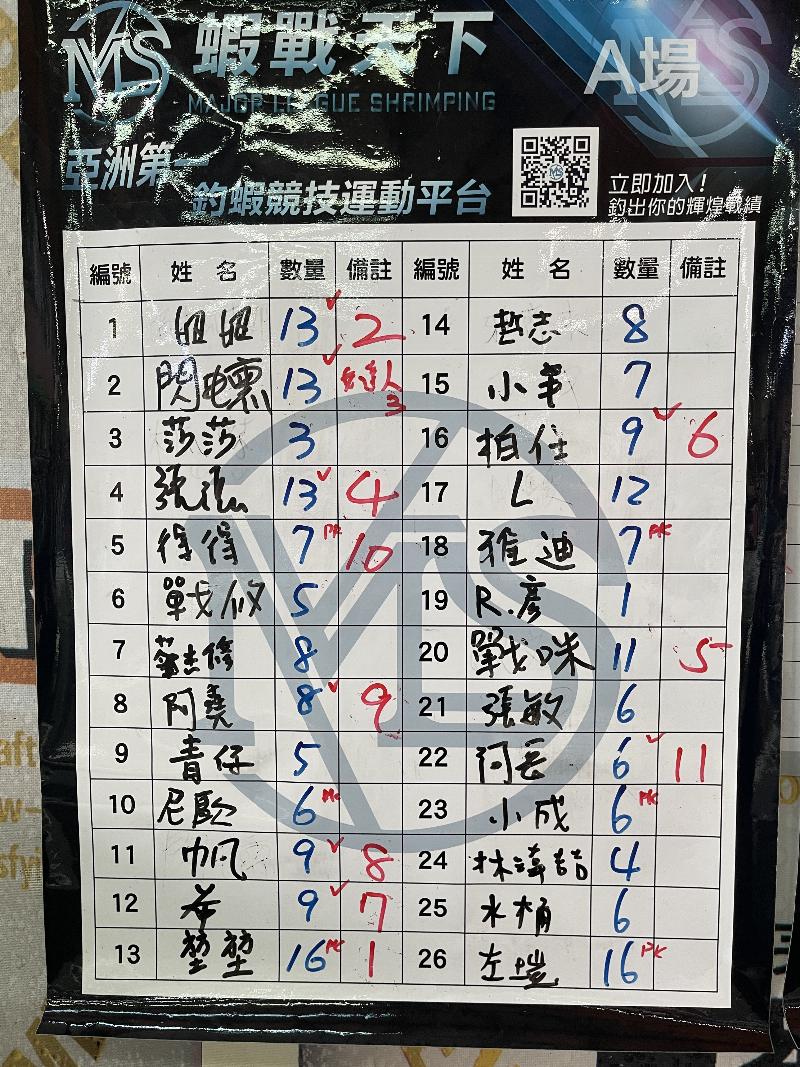 MLS
蝦戰天下
A場
MAJOR LEAGUE SHRIMPING
亞洲第一
釣蝦競技運動平台
立即加入!
釣出你的輝煌戰績
編號 姓 名 數量 備註 編號 姓 名 數量 備註
1 13 ✓ 2 14 哲志 8
2 閃電 13 ✓ 3 15 小羊 7
3 莎莎 3 16 柏住 9 ✓ 6
4 張 13 ✓ 4 17 L 12
5 得得 7 PK 10 18 雅迪 7 PK
6 戰 5 19 R.彥 1
7 8 20 戰咪 11 5
8 阿堯 8 ✓ 9 21 張敏 6
9 青仔 5 22 阿岳 6 ✓ 11
10 尼歐 6 PK 23 小成 6 PK
11 帆 9 ✓ 8 24 林 4
12 希 9 ✓ 7 25 水桶 6
13 堃堃 16 PK 1 26 左 16 PK